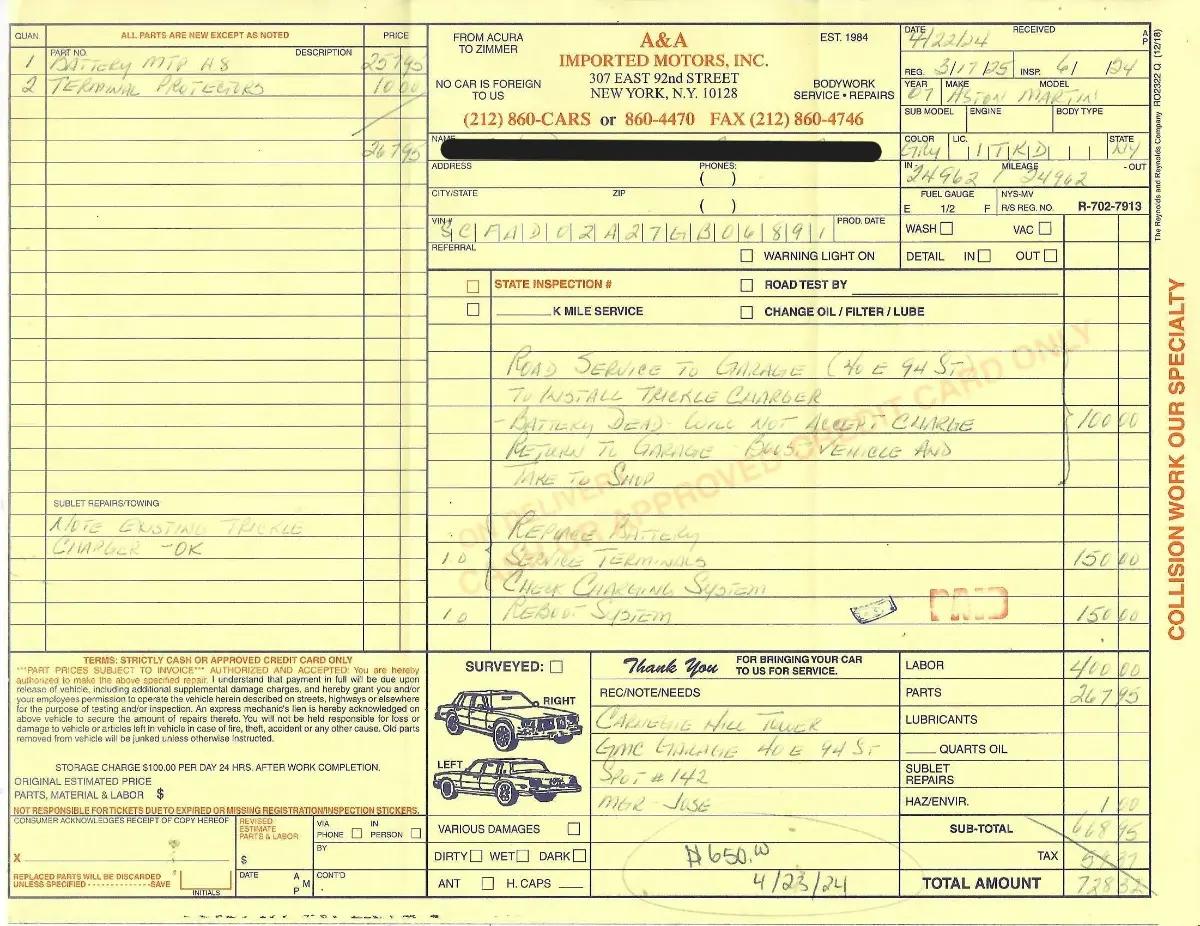 QUAN.
ALL PARTS ARE NEW EXCEPT AS NOTED
PRICE
PART NO.
DESCRIPTION
1 BATTERY MTP H8 257 95
2 TERMINAL PROTECTORS 10 00
267 95
SUBLET REPAIRS/TOWING
NOTE EXISTING TRICKLE
CHARGER -OK
FROM ACURA
TO ZIMMER
NO CAR IS FOREIGN
TO US
A&A
IMPORTED MOTORS, INC.
307 EAST 92nd STREET
NEW YORK, N.Y. 10128
EST. 1984
BODYWORK
SERVICE • REPAIRS
(212) 860-CARS or 860-4470 FAX (212) 860-4746
NAME
ADDRESS
PHONES:
( )
CITY/STATE
ZIP
( )
VIN#
SCFAD02A27GB06891
PROD. DATE
REFERRAL
WARNING LIGHT ON
DATE
4/22/24
RECEIVED
A
P
REG. 3/17/25 INSP. 6/ /24
YEAR MAKE MODEL
07 ASTON MARTIN
SUB MODEL ENGINE BODY TYPE
COLOR LIC. STATE
NY
IN- MILEAGE -OUT
24962 / 24962
FUEL GAUGE
E 1/2 F
NYS-MV
R/S REG. NO. R-702-7913
WASH VAC
DETAIL IN OUT
STATE INSPECTION #
ROAD TEST BY
K MILE SERVICE
CHANGE OIL / FILTER / LUBE
ROAD SERVICE TO GARAGE (40 E 94 ST)
TO INSTALL TRICKLE CHARGER
- BATTERY DEAD - WILL NOT ACCEPT CHARGE 100 00
RETURN TO GARAGE BOOST VEHICLE AND
TAKE TO SHOP
REPLACE BATTERY
1.0 SERVICE TERMINALS 150 00
CHECK CHARGING SYSTEM
1.0 REBOOT SYSTEM 150 00
PAID
ON DELIVERY
CASH OR APPROVED CREDIT CARD ONLY
The Reynolds and Reynolds Company RO2322 Q (12/18)
COLLISION WORK OUR SPECIALTY
TERMS: STRICTLY CASH OR APPROVED CREDIT CARD ONLY
***PART PRICES SUBJECT TO INVOICE*** AUTHORIZED AND ACCEPTED: You are hereby
authorized to make the above specified repair. I understand that payment in full will be due upon
release of vehicle, including additional supplemental damage charges, and hereby grant you and/or
your employees permission to operate the vehicle herein described on streets, highways or elsewhere
for the purpose of testing and/or inspection. An express mechanic's lien is hereby acknowledged on
above vehicle to secure the amount of repairs thereto. You will not be held responsible for loss or
damage to vehicle or articles left in vehicle in case of fire, theft, accident or any other cause. Old parts
removed from vehicle will be junked unless otherwise instructed.
STORAGE CHARGE $100.00 PER DAY 24 HRS. AFTER WORK COMPLETION.
ORIGINAL ESTIMATED PRICE
PARTS, MATERIAL & LABOR $
NOT RESPONSIBLE FOR TICKETS DUE TO EXPIRED OR MISSING REGISTRATION/INSPECTION STICKERS.
CONSUMER ACKNOWLEDGES RECEIPT OF COPY HEREOF
X
REPLACED PARTS WILL BE DISCARDED
UNLESS SPECIFIED - - - - - - - - - - - - - -SAVE
INITIALS
REVISED
ESTIMATE
PARTS & LABOR
$
DATE A M P
VIA
PHONE
IN
PERSON
BY
CONT'D
SURVEYED:
RIGHT
LEFT
VARIOUS DAMAGES
DIRTY WET DARK
ANT H. CAPS
Thank You FOR BRINGING YOUR CAR
TO US FOR SERVICE.
REC/NOTE/NEEDS
CARNEGIE HILL TOWER
GMC GARAGE 40 E 94 ST
SPOT #142
MGR - JOSE
$650.00
4/23/24
LABOR 400 00
PARTS 267 95
LUBRICANTS
QUARTS OIL
SUBLET
REPAIRS
HAZ/ENVIR. 1 00
SUB-TOTAL 668 95
TAX 59 37
TOTAL AMOUNT 728 32